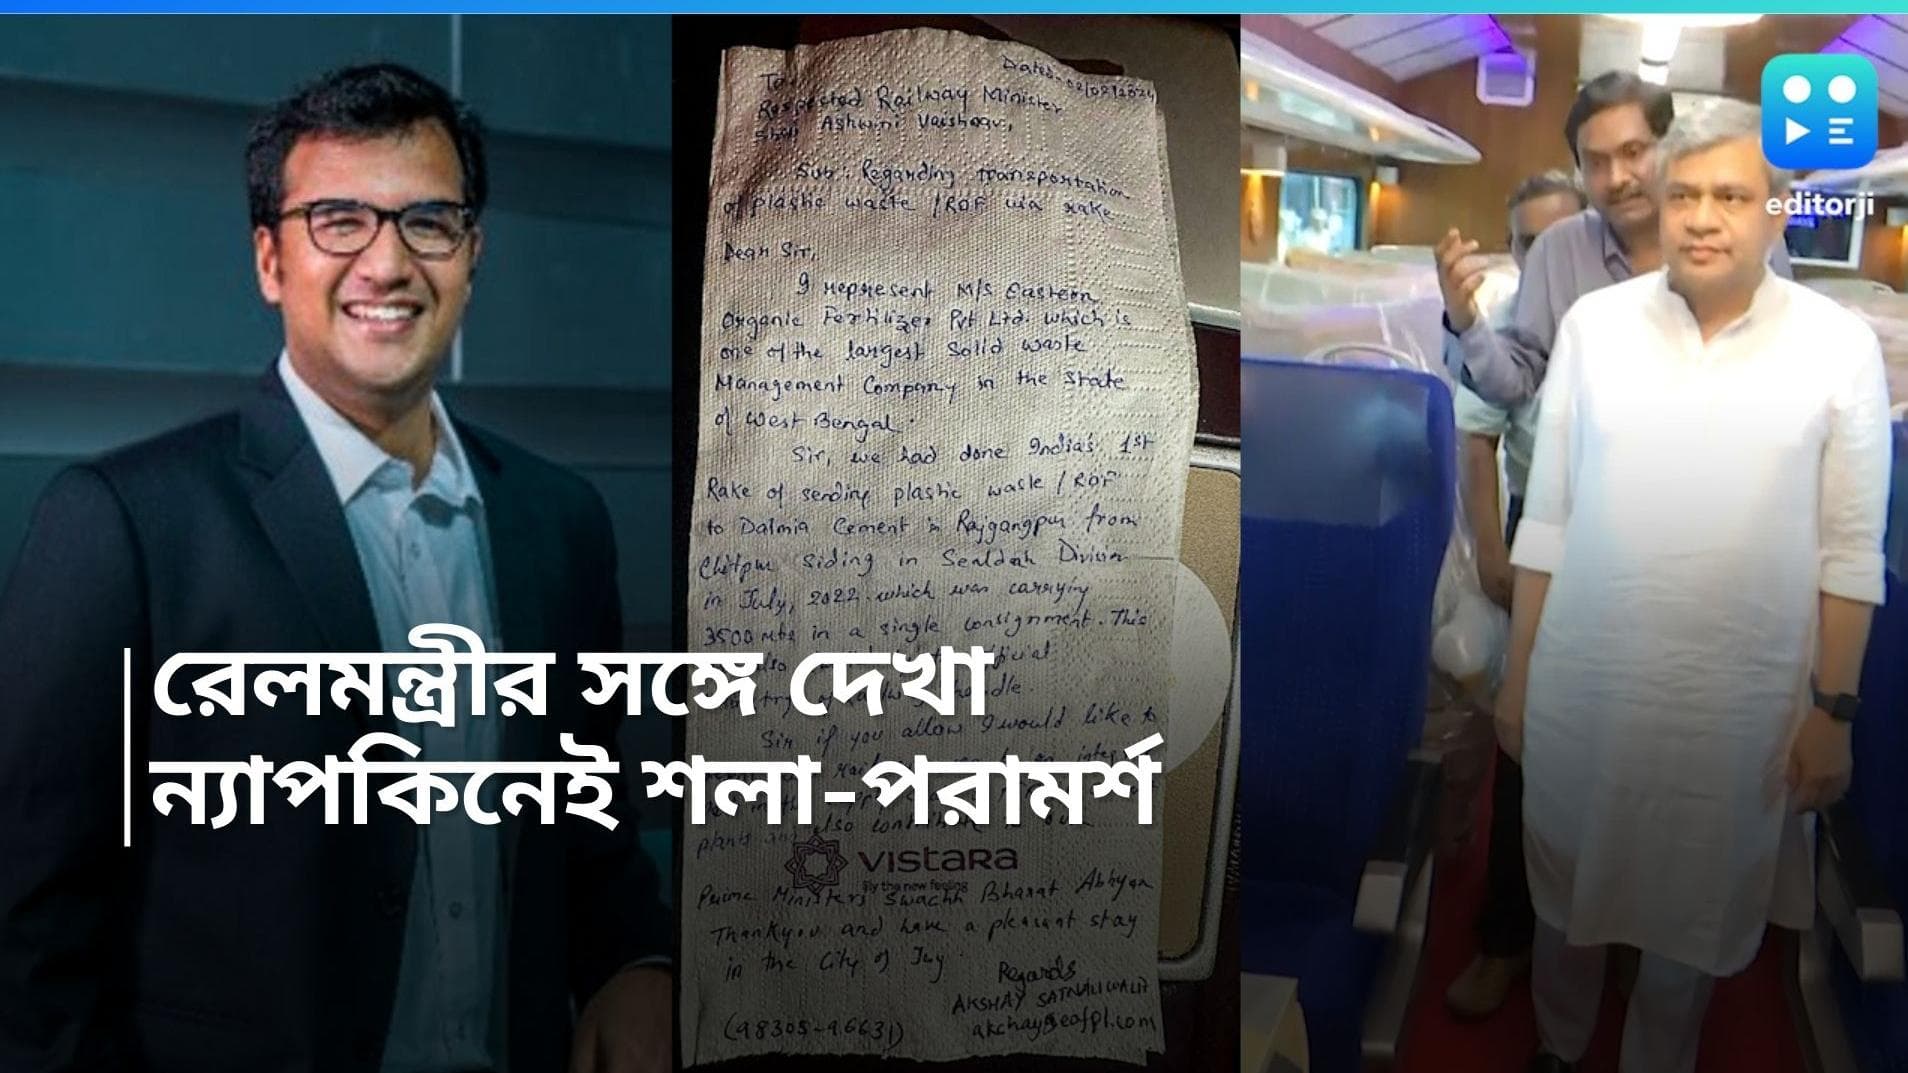 Dated- 02/02/2024
To,
Respected Railway Minister
Shri Ashwini Vaishnav,
Sub: Regarding transportation
of plastic waste / RDF via rake
Dear Sir,
I represent M/s Eastern
Organic Fertilizer Pvt Ltd. which is
one of the largest Solid waste
Management Company in the State
of West Bengal.
Sir, we had done India's 1st
Rake of sending plastic waste / RDF
to Dalmia Cement in Rajgangpur from
Chitpur siding in Sealdah Division
in July, 2022 which was carrying
3500 mts in a single consignment. This
Sir if you allow I would like to
plants and also contribute
Prime Ministers Swachh Bharat Abhyan
Thankyou and have a pleasant stay
in the City of Joy.
Regards
AKSHAY SATNALIWALA
(98305-96631)
akshay@eofpl.com
VISTARA
fly the new feeling
রেলমন্ত্রীর সঙ্গে দেখা
ন্যাপকিনেই শলা-পরামর্শ
editorji